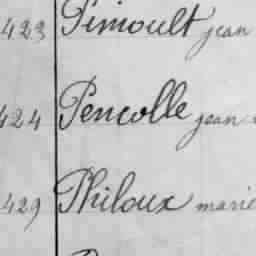 423 Pimoult jean
424 Pencolle jean
429 Philoux marie